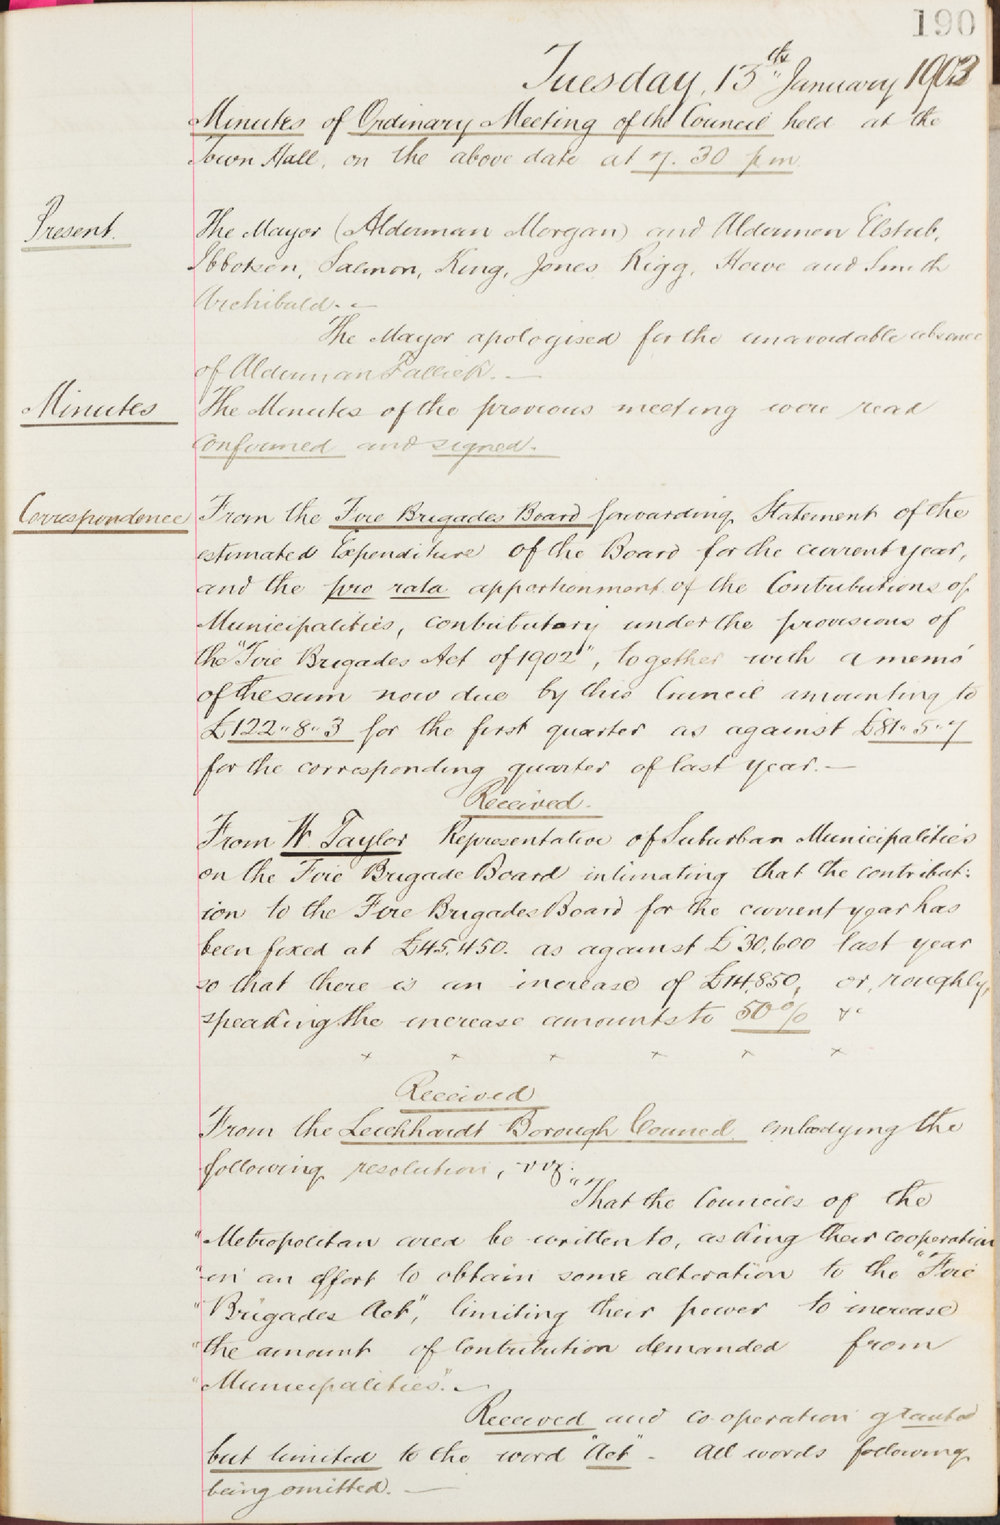 190
Tuesday, 13th January 1903
Minutes of Ordinary Meeting of the Council held at the
Town Hall, on the above date at 7.30 pm.
Present.
The Mayor (Alderman Morgan) and Aldermen Elstub,
Ibbotson, Salmon, King, Jones, Rigg, Howe and Smith
Archibald. —
The Mayor apologised for the unavoidable absence
of Alderman Fallick. —
Minutes
The Minutes of the previous meeting were read
confirmed and signed. —
Correspondence
From the Fire Brigades Board forwarding Statement of the
estimated Expenditure of the Board for the current year,
and the pro rata apportionment of the Contributions of
Municipalities, contributory under the provisions of
the "Fire Brigades Act of 1902", together with a memo
of the sum now due by this Council amounting to
£122"8"3 for the first quarter as against £81"5"7
for the corresponding quarter of last year. —
Received.
From W Taylor Representative of Suburban Municipalities
on the Fire Brigade Board intimating that the contribut:
ion to the Fire Brigades Board for the current year has
been fixed at £45,450. as against £30,600 last year
so that there is an increase of £14,850, or, roughly,
speaking the increase amounts to 50% &c
x x x x x x
Received
From the Leichhardt Borough Council embodying the
following resolution, viz:
"That the Councils of the
"Metropolitan area be written to, asking their cooperation
"in an effort to obtain some alteration to the "Fire
"Brigades Act", limiting their power to increase
"the amount of Contribution demanded from
"Municipalities". —
Received and co-operation granted
but limited to the word "Act" - All words following
being omitted. —